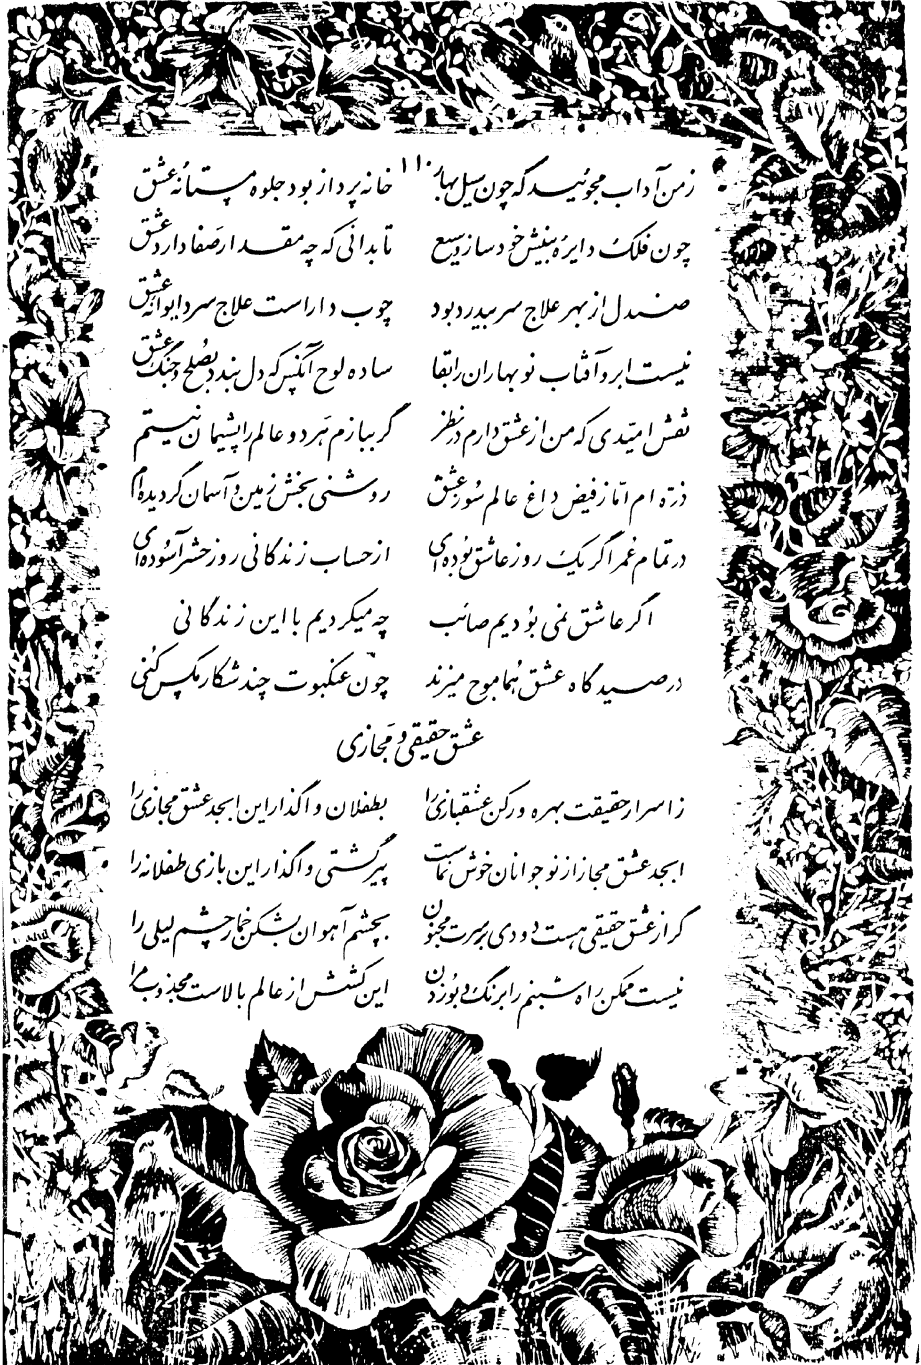 ۱۱۰
ز من آداب مجوئید که چون سیل بهار خانه پرداز بود جلوه مستانهٔ عشق
چون فلک دایرهٔ بینش خود ساز وسیع تا بدانی که چه مقدار صفا دارد عشق
صندل از بهر علاج سر بیدرد بود چوب دار است علاج سر دیوانه عشق
نیست ابر و آفتاب نوبهاران را بقا ساده لوح آنکس که دل بندد بصلح و جنگ عشق
نقش امیّدی که من از عشق دارم در نظر گر ببازم هر دو عالم را پشیمان نیستم
ذرّه ام امّا ز فیض داغ عالم سوز عشق روشنی بخش زمین و آسمان گردیده ام
در تمام عمر اگر یک روز عاشق بوده ای از حساب زندگانی روز حشر آسوده ای
اگر عاشق نمی بودیم صائب چه میکردیم با این زندگانی
در صیدگاه عشق هما موج میزند چون عنکبوت چند شکار مگس کنی
عشق حقیقی و مجازی
ز اسرار حقیقت بهره ور کن عشقبازی را بطفلان واگذار این ابجد عشق مجازی را
ابجد عشق مجاز از نوجوانان خوش نماست پیر گشتی واگذار این بازی طفلانه را
گر از عشق حقیقی هست دودی بر سرت مجنون بچشم آهوان بشکن خمار چشم لیلی را
نیست ممکن راه شبنم را برنگ و بو زدن این کشش از عالم بالاست مجذوب مرا